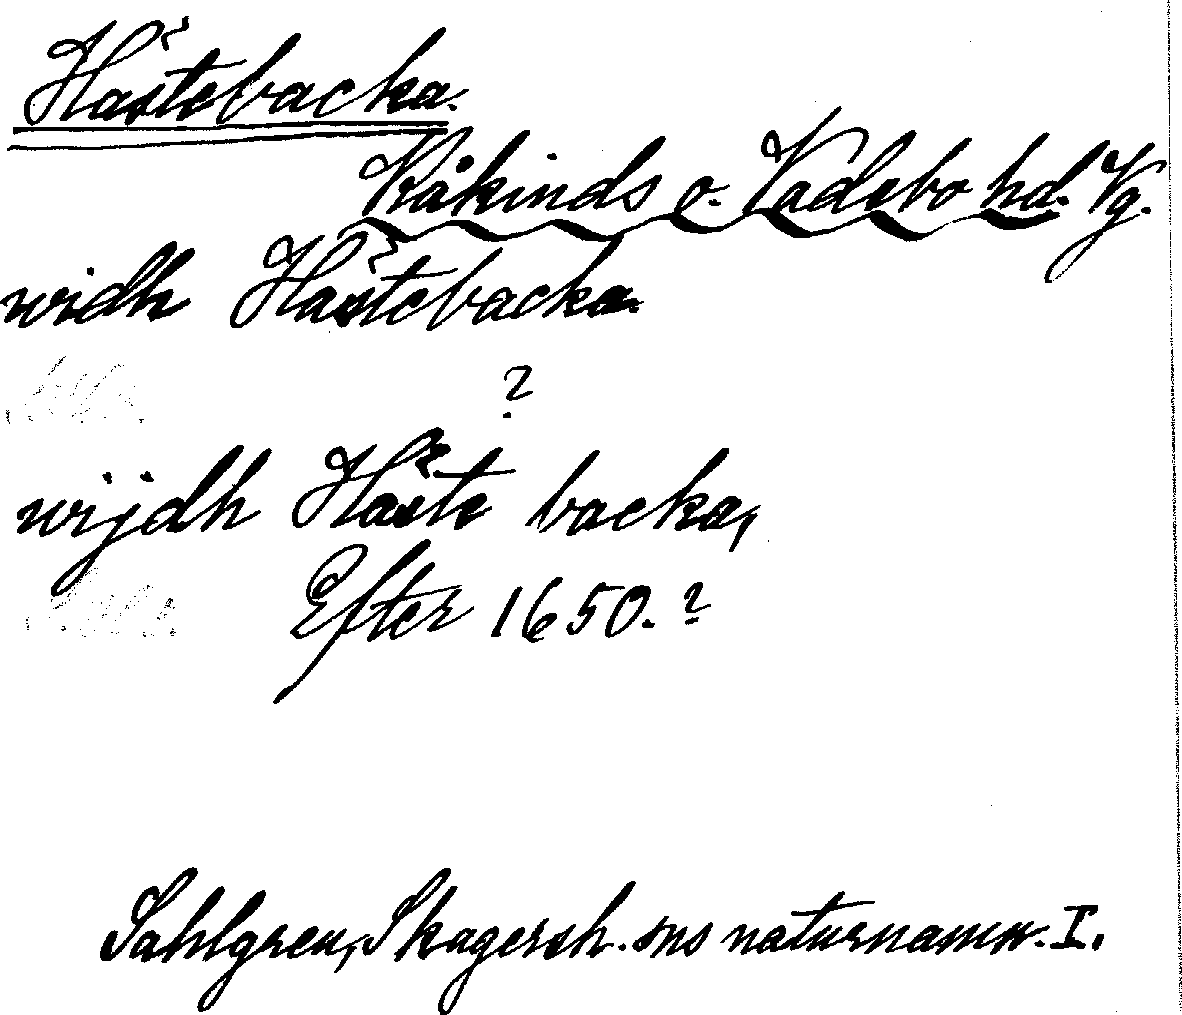 Hästebacka.
Kåkinds o. Vadsbo hd. Vg.
widh Hästebacka.
?
wijdh Häste backa,
Efter 1650.?
Sahlgren, Skagersh. sns naturnamn. I.